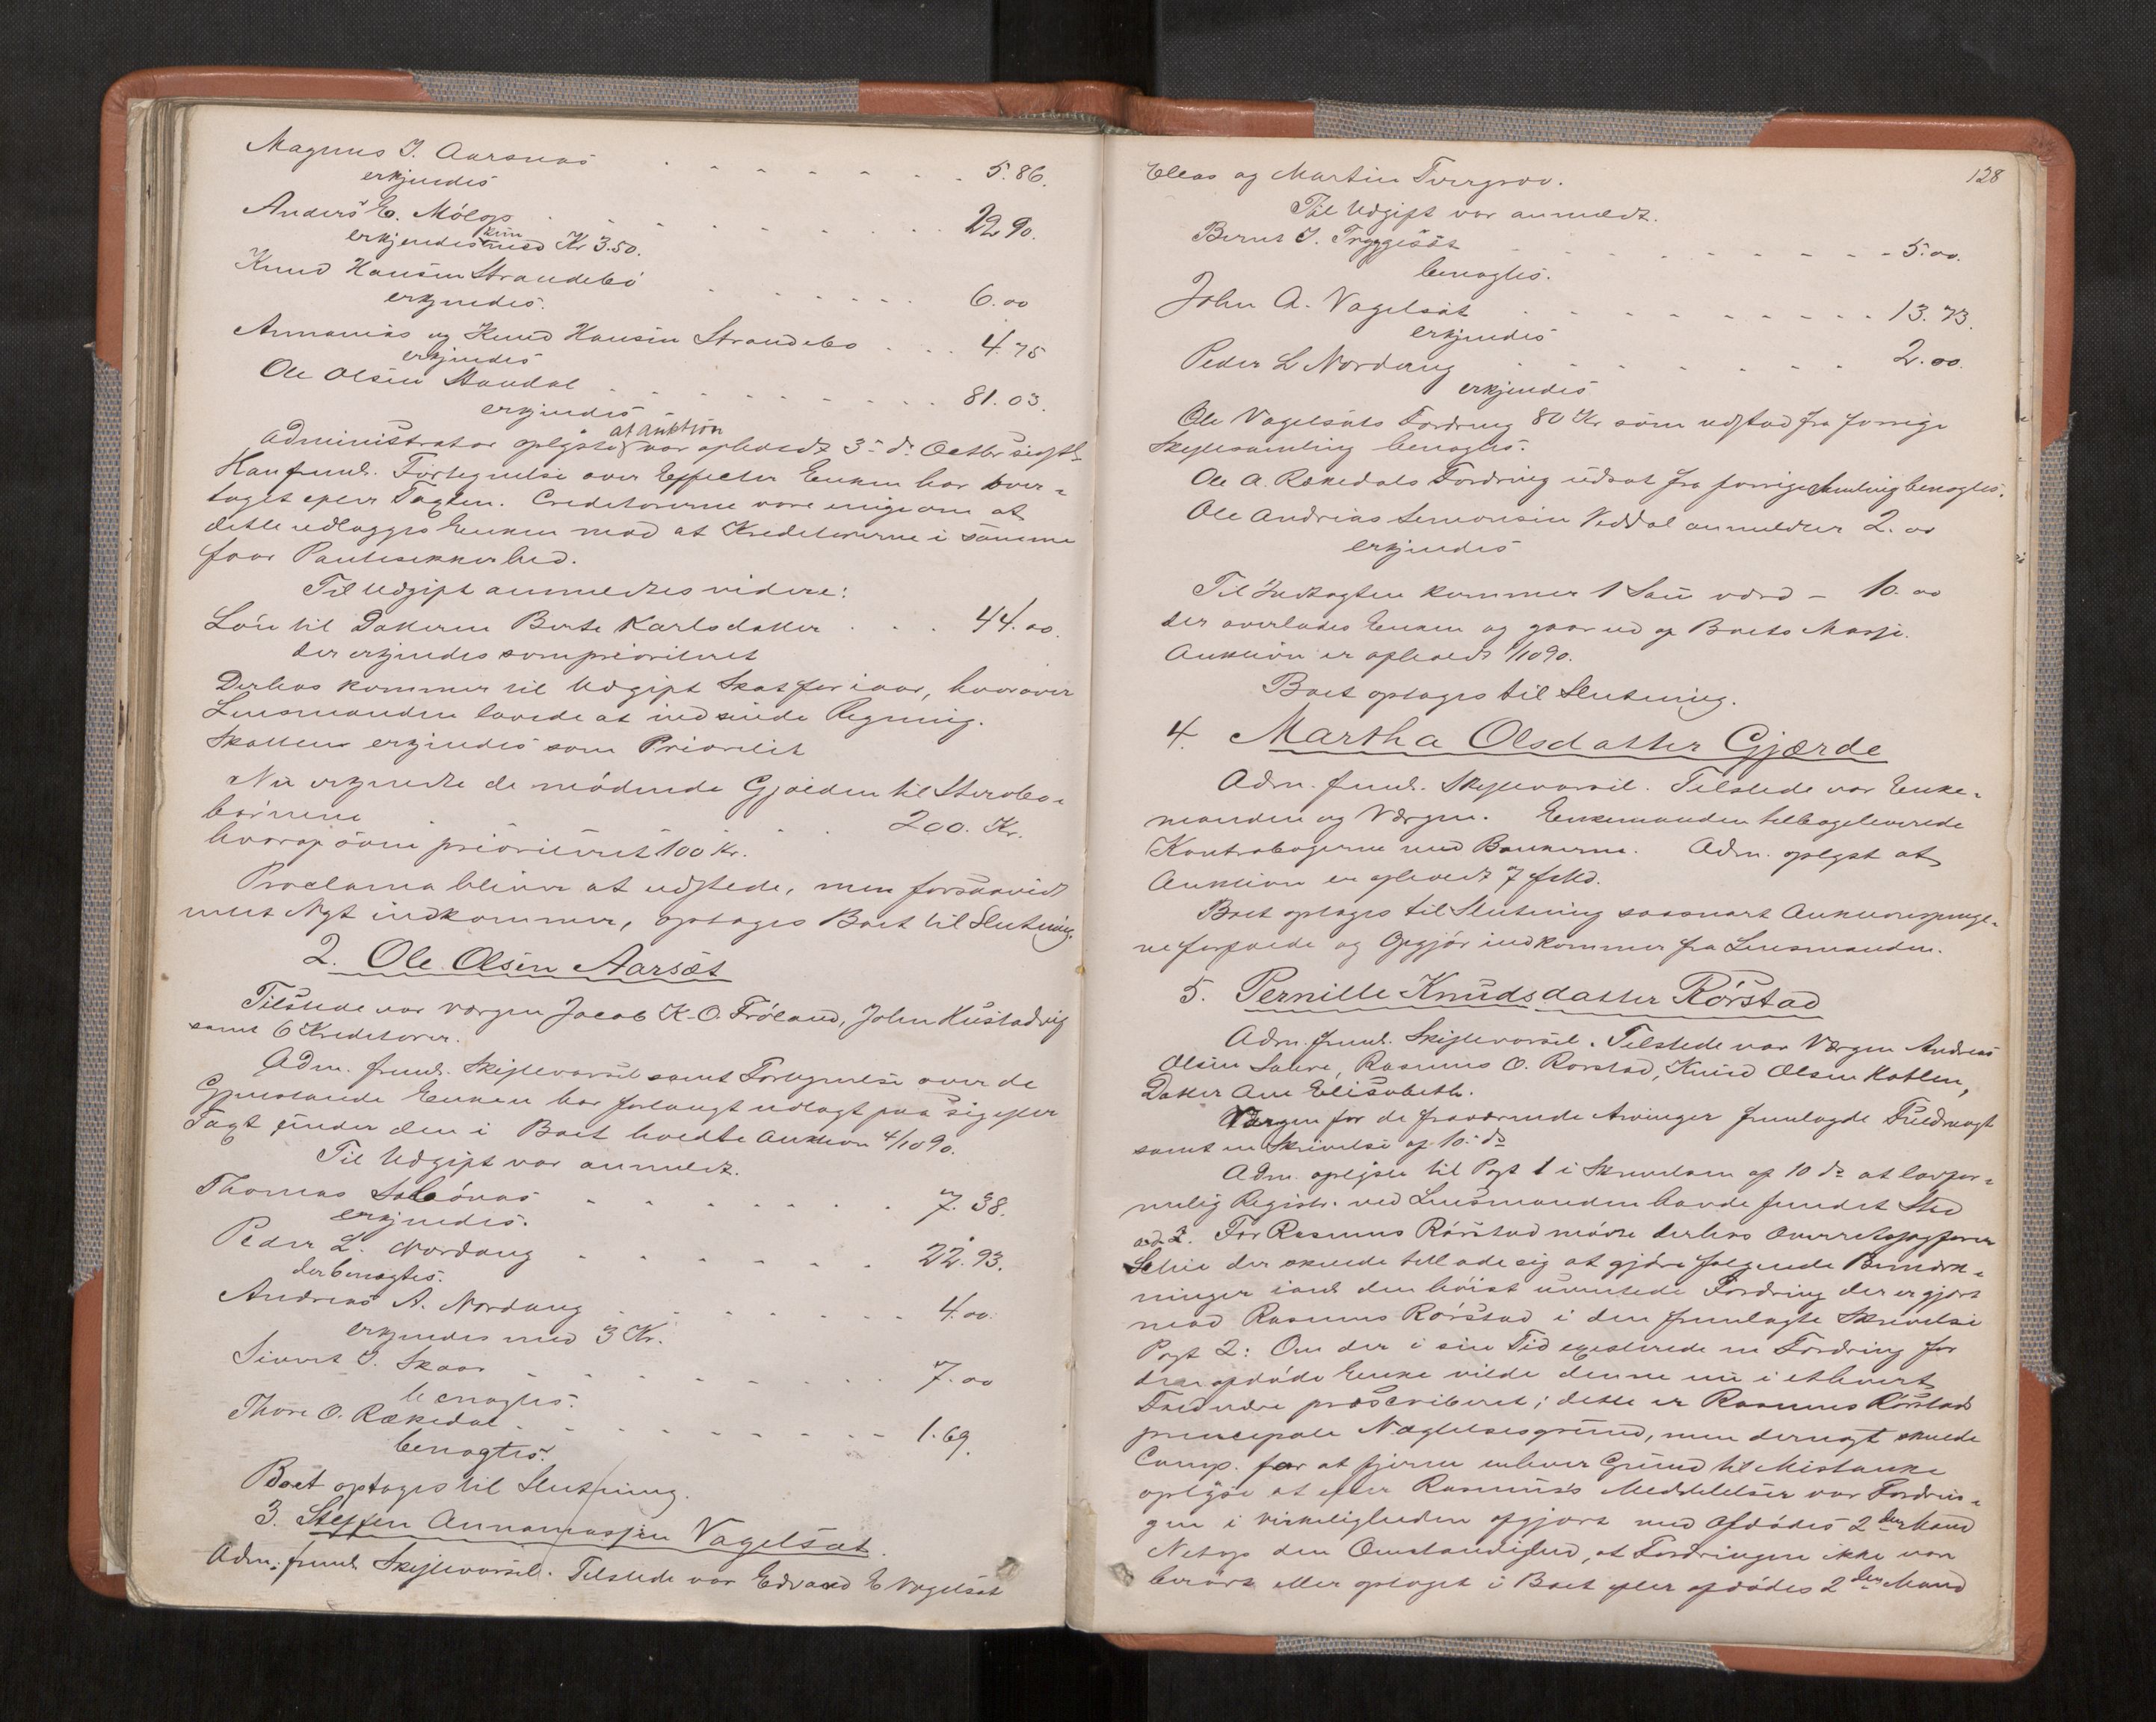 Magnus J. Aarsnes . . . . . . . 5.86.
erkjendes
Anders E. Mölop . . . . . . . 22.90.
erkjendes kun med Kr 3.50.
Knud Hansen Strandebö . . . . . . 6.00
erkjendes.
Annanias og Knud Hansen Strandebö . . . . 4.75
erkjendes
Ole Olsen Standal . . . . . . . 81.03.
erkjendes
Administrator oplyste at Auktion var afholdt 3die ds. Octbr sidstl.
Han freml. Fortegnelse over Effecter Enken har over-
taget efter Taxten. Creditorerne vare enige om at
dette udlægges Enken mod at Kreditorerne i samme
faar Pantesikkerhed.
Til Udgift anmeldtes videre:
Lön til Datteren Berte Karlsdatter . . . 44.00.
der erkjendes som prioriteret
Derhos kommer til Udgift Skat for iaar, hvorover
Lensmanden lovede at indsende Regning.
Skatten erkjendes som Prioritet
Nu erkjendte de mødende Gjælden til Sterbo-
börnene . . . . 200. Kr.
hvoraf prioriteret 100 Kr.
Proclama bliver at udstede, men forsaavidt
intet Nyt indkommer, optages Boet til Slutning.
2. Ole Olsen Aarsæt
Tilstede var Værgen Jacob K. O. Fröland, John Kustadvig
samt 6 Kreditorer.
Adm. freml. Skiftevarsel samt Fortegnelse over de
Gjenstande Enken har forlangt udlagt paa sig efter
Taxt under den i Boet holdte Auktion 4/10 90.
Til Udgift var anmeldt.
Thomas Sæbönes . . . . . . . 7.38.
erkjendes.
Peder L. Nordang . . . . . . 22.93.
der benægtes.
Andreas A. Nordang . . . . . . 4.00.
erkjendes med 3 Kr.
Sivert I. Skaar . . . . . . . 7.00
benægtes.
Thore O. Rekedal . . . . . . . 1.69.
benægtes.
Boet optages til Slutning.
3. Steffen Annaniassen Vagelsæt.
Adm. freml. Skiftevarsel. Tilstede var Edvard E Vagelsæt
128
Elias og Martin Tvergrov.
Til Udgift var anmeldt.
Bernt I. Tryggesæt . . . . . . . 5.00.
benægtes.
John A. Vagelsæt . . . . . . . 13.73.
erkjendes
Peder L Nordang . . . . . . . 2.00.
erkjendes
Ole Vagelsæts Fordring 80 Kr som udstod fra forrige
Skiftesamling benægtes.
Ole A. Rekedals Fordring udsat fra forrige Samling benægtes.
Ole Andreas Simonsen Viddal anmeldter 2.00
erkjendes
Til Indtægten kommer 1 Sau værd – 10.00
der overlades Enken og gaar ud af Boets Masse.
Auktion er afholdt 1/10 90.
Boet optages til Slutning.
4. Martha Olsdatter Gjærde
Adm. freml. Skiftevarsel. Tilstede var Enke-
manden og Værgen. Enkemanden tilbageleverede
Kontrabøgerne med Bankerne. Adm. oplyst at
Auktion er afholdt 7 ds.
Boet optages til Slutning saasnart Auktionspenge-
ne forfalde og Opgjör indkommer fra Lensmanden.
5. Pernille Knudsdatter Rörstad
Adm. freml. Skiftevarsel. Tilstede var Værgen Andreas
Olsen Sahre, Rasmus O. Rorstad, Knud Olsen Hatlen,
Datter Ane Elisabeth.
Værgen for de fraværende Arvinger fremlagde Fuldmagt
samt en Skrivelse af 10. ds
Adm. oplyste til Post 1 i Skrivelsen af 10 ds at lovfor-
melig Registr. ved Lensmanden havde fundet Sted
ad 2. For Rasmus Rörstad mödte derhos Overretssagförer
der skulde tillade sig at gjöre følgende Bemærk-
ninger ianl. den höist uventede Fordring der er gjort
mod Rasmus Rörstad i den fremlagte Skrivelse
Post 2: Om der i sin Tid existerede en Fordring for
den afdöde Enke vilde denne nu i ethvert
Fald være præscriberet; dette er Rasmus Rörstads
principale Nægtelsesgrund, men dernæst skulde
Comp. for at fjerne enhver Grund til Mistanke
oplyse at efter Rasmus's Meddelelser var Fordrin-
gen i Virkeligheden opgjort med Afdödes 2den Mand
Netop den Omstændighed, at Fordringen ikke var
berört eller optaget i Boet efter afdödes 2den Mand